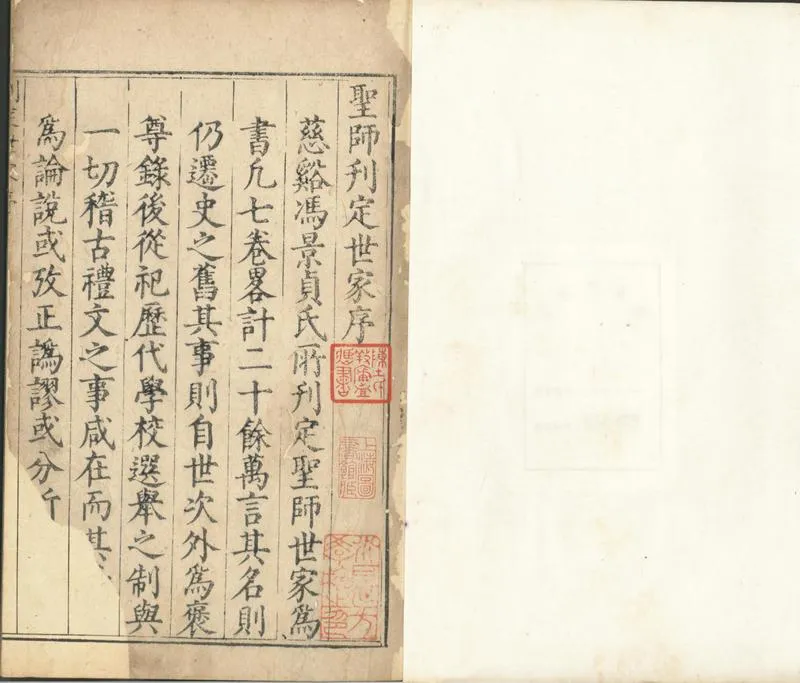 聖師刋定世家序
慈谿馮景貞氏所刋定聖師世家爲
書凢七卷畧計二十餘萬言其名則
仍遷史之舊其事則自世次外爲褒
尊錄後從祀歷代學校選舉之制與
一切稽古禮文之事咸在而其
爲論說或攷正譌謬或分
上海圖書館藏